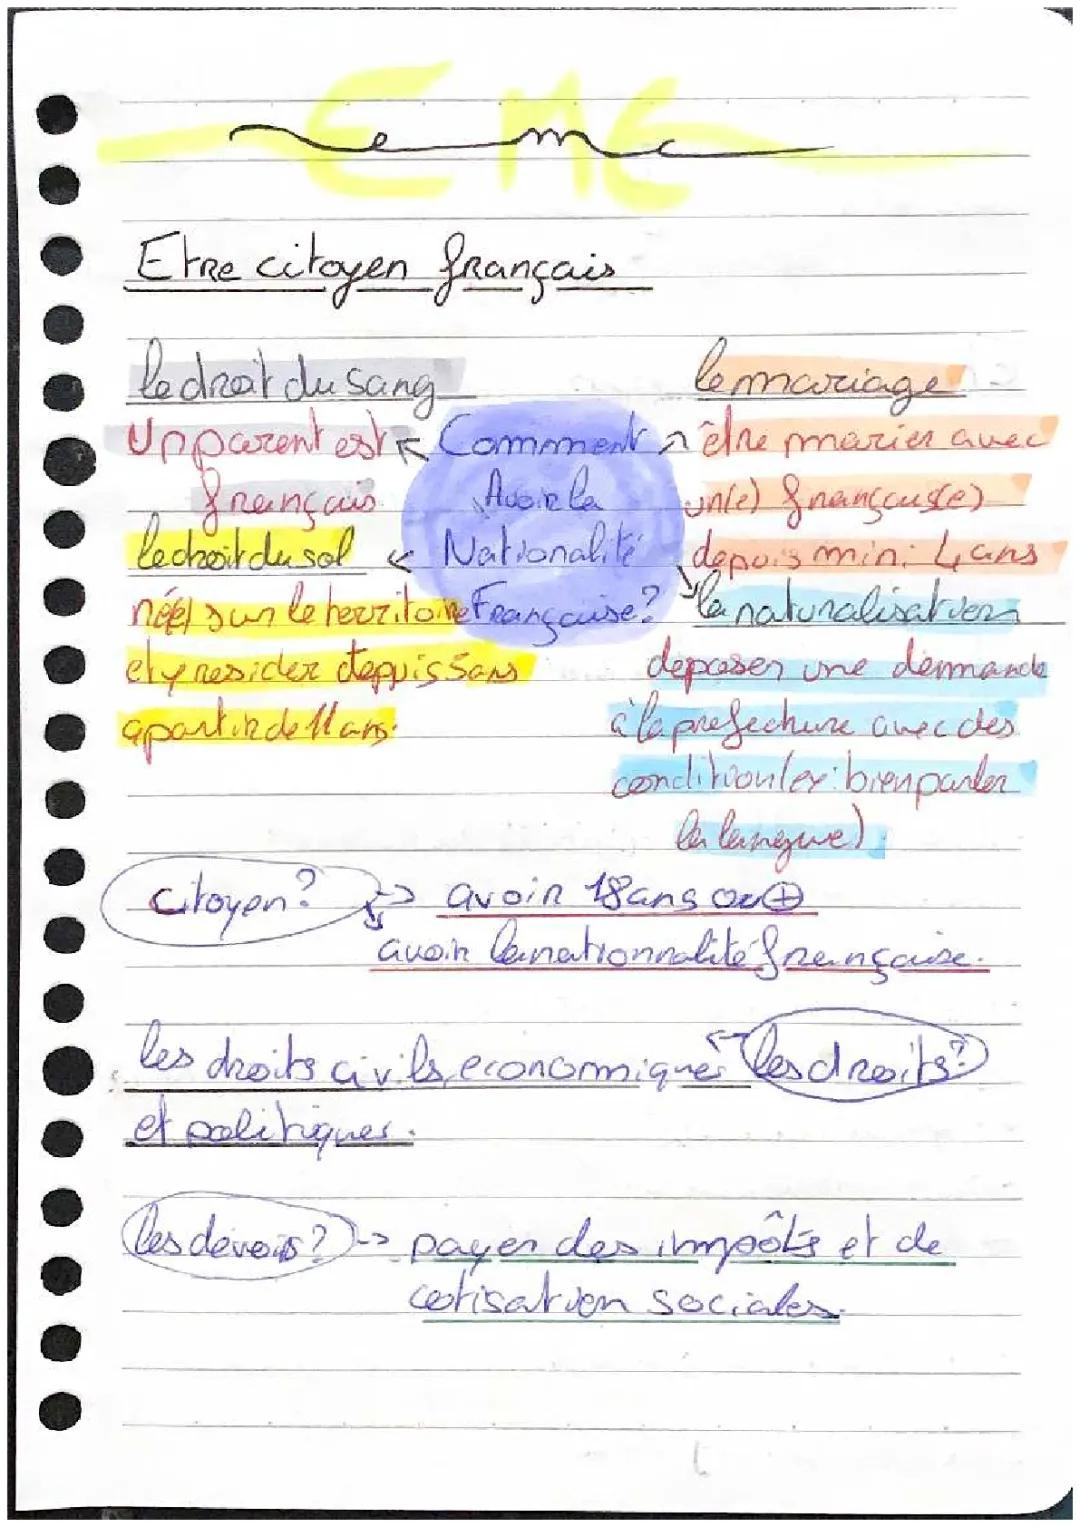 EMC
emc
Etre citoyen français
le droit du sang
Un parent est
français
le droit du sol
né(e) sur le territoire
et y resider depuis 5 ans
a partir de 11 ans.
Comment
Avoir la
Nationalité
Française?
le mariage
être marier avec
un(e) français(e)
depuis min: 4 ans
la naturalisation
deposer une demande
à la prefecture avec des
condition (ex: bien parler
la langue)
citoyen? → avoir 18 ans ou +
avoir la nationnalité française.
les droits civils, economiques ← les droits?
et politiques.
les devoirs? → payer des impôts et de
cotisation sociales.